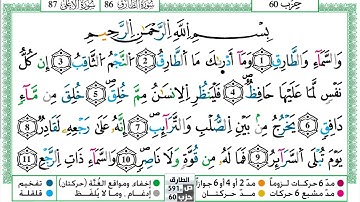 حزب 60 سورة الطارق 86 سورة الأعلى 87
بِسْمِ اللَّهِ الرَّحْمَٰنِ الرَّحِيمِ
وَالسَّمَاءِ وَالطَّارِقِ 1 وَمَا أَدْرَىٰكَ مَا الطَّارِقُ 2 النَّجْمُ الثَّاقِبُ 3 إِن كُلُّ
نَفْسٍ لَّمَّا عَلَيْهَا حَافِظٌ 4 فَلْيَنظُرِ الْإِنسَٰنُ مِمَّ خُلِقَ 5 خُلِقَ مِن مَّاءٍ
دَافِقٍ 6 يَخْرُجُ مِنۢ بَيْنِ الصُّلْبِ وَالتَّرَائِبِ 7 إِنَّهُ عَلَىٰ رَجْعِهِ لَقَادِرٌ 8
يَوْمَ تُبْلَى السَّرَائِرُ 9 فَمَا لَهُ مِن قُوَّةٍ وَلَا نَاصِرٍ 10 وَالسَّمَاءِ ذَاتِ الرَّجْعِ 11
مد 6 حركات لزوماً مد 2 أو 4 أو 6 جوازاً الطارق إخفاء ومواقع الغُنَّة (حركتان) تفخيم
مد مشبع 6 حركات مد حركتان ص 591 حزب 60 إدغام . وما لا يُلفظ قلقلة